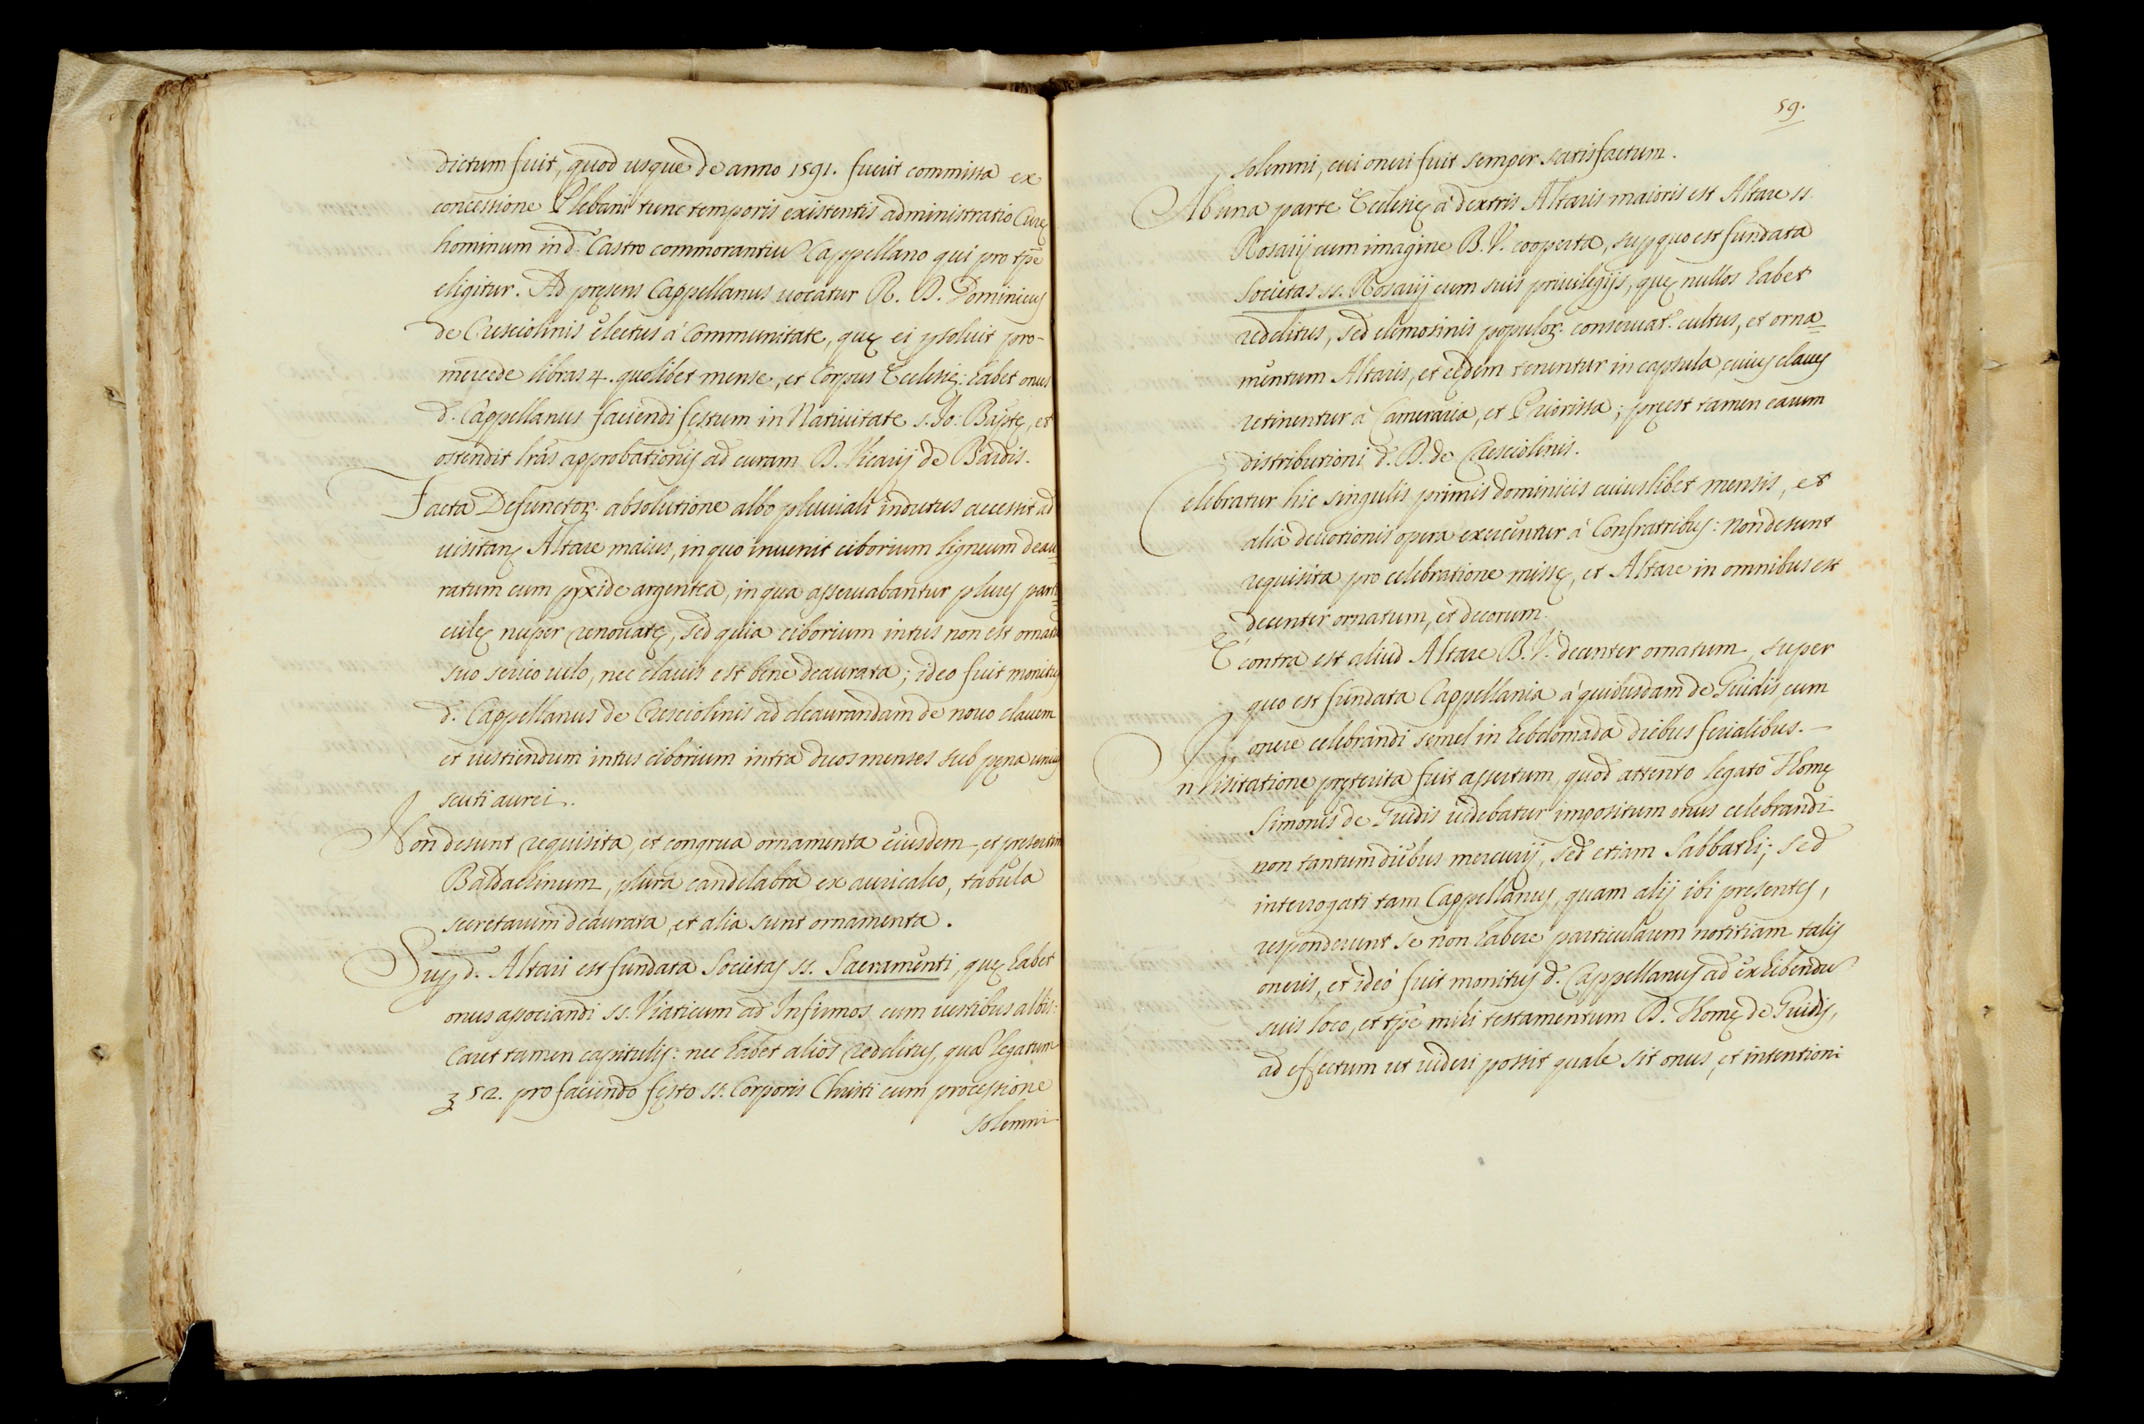 dictum fuit, quod usque de anno 1591. fuerit commissa ex
concessione Plebani tunc temporis existentis administratio Curę
hominum in d. Castro commorantiu Cappellano qui pro tpē
eligitur. Ad pręsens Cappellanus uocatur R. D. Dominicus
de Cresciolinis electus à Communitate, quę ei psoluit pro-
mercede libras 4. quolibet mense, et Corpus Ecclesię: habet onus
d. Cappellanus faciendi festum in Natiuitate s. Jo: Baptę, et
ostendit lrās approbationis ad curam D. Vicarij de Bardis.
Facta Defunctor. absolutione albo pluuiali indutus accessit ad
uisitanḍ Altare maius, in quo inuenit ciborium ligneum deau=
ratum cum pyxide argentea, in qua asseruabantur plures parti=
culę nuper renouatę, sed quia ciborium intus non est ornatū
suo serico uelo, nec clauis est bene deaurata; ideo fuit monitus
d. Cappellanus de Cresciolinis ad deaurandam de nouo clauem
et uestiendum intus ciborium intra duos menses sub pęna unius
scuti aurei.
Non desunt requisita, et congrua ornamenta eiusdem, et presertim
Baldachinum, plura candelabra ex auricalco, tabula
secretarum deaurata, et alia sunt ornamenta.
Sup d. Altari est fundata Societas ss. Sacramenti, quę habet
onus asociandi ss. Viaticum ad Infirmos cum uestibus albis:
Caret tamen capitulis: nec habet alios redditus, quā legatum
ʒ 52. pro faciendo festo ss. Corporis Christi cum processione
solemni
59.
solemni, cui oneri fuit semper satisfactum.
Ab una parte Ecclesię à dextris Altaris maioris est Altare ss.
Rosarij cum imagine B. V. cooperta, sup quo est fundata
Societas ss. Rosarij cum suis priuilegijs, quę nullos habet
redditus, sed elimosinis populor. conseruat. cultus, et orna=
mentum Altaris, et eędem tenentur in capsula, cuius claues
retinentur à Cameraria, et Priorissa; pręest tamen earum
distributioni d. D. de Cresciolinis.
Celebratur hic singulis primis dominicis cuiuslibet mensis, et
alia deuotionis opera exercentur à Confratribus: non desunt
requisita pro celebratione missę, et Altare in omnibus est
decenter ornatum, et decorum.
E contra est aliud Altare B. V. decenter ornatum, super
quo est fundata Cappellania à quibusdam de Guidis, cum
onere celebrandi semel in hebdomada diebus ferialibus.
In Visitatione pręterita fuit assertum, quod attento legato Thomę
Simonis de Guidis uidebatur impositum onus celebrandi
non tantum diebus mercurij, sed etiam Sabbathi; sed
interrogati tam Cappellanus, quam alij ibi presentes,
responderunt se non habere particularem notitiam talis
oneris, et ideò fuit monitus d. Cappellanus ad exhibendū
suis loco, et tpē mihi testamentum D. Thomę de Guidis,
ad effectum ut uideri possit quale sit onus, et intentioni